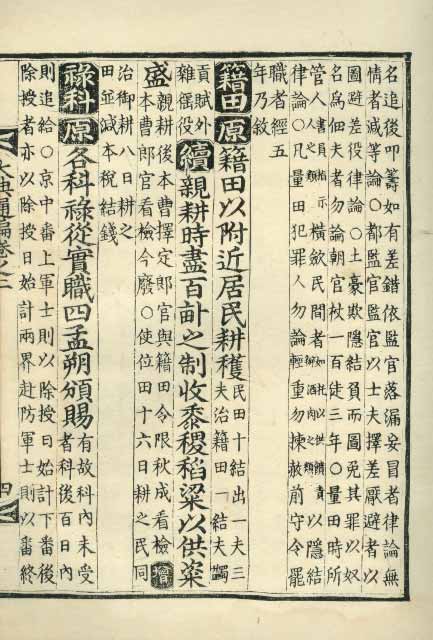 名追後叩筭如有差錯依監官落漏妄冒者律論無
情者減等論○都監官監官以士夫擇差厭避者以
圖避差役律論○土豪欺隱結負而圖免其罪以奴
名爲佃夫者勿論朝官杖一百徒三年○量田時所
管人書員指示人之類橫斂民間者如托以供饋責辦酒肉之類以隱結
律論○凡量田犯罪人勿論輕重勿揀赦前守令罷
職者經五
年乃敍
籍田原籍田以附近居民耕穫民田十結出一夫三
夫治籍田一結夫蠲
貢賦外
雜徭役續親耕時盡百畝之制收黍稷稻粱以供粢
盛親耕後本曹擇定郎官與籍田令限秋成看檢增
本曹郎官看檢今廢○使位田十六日耕之民同
治御耕八日耕之
田並減本稅結錢
祿科原各科祿從實職四孟朔頒賜有故科內未受
者科後百日內
則追給○京中番上軍士則以除授日始計下番後
除授者亦以除授日始計兩界赴防軍士則以番終
大典通編卷之二
四